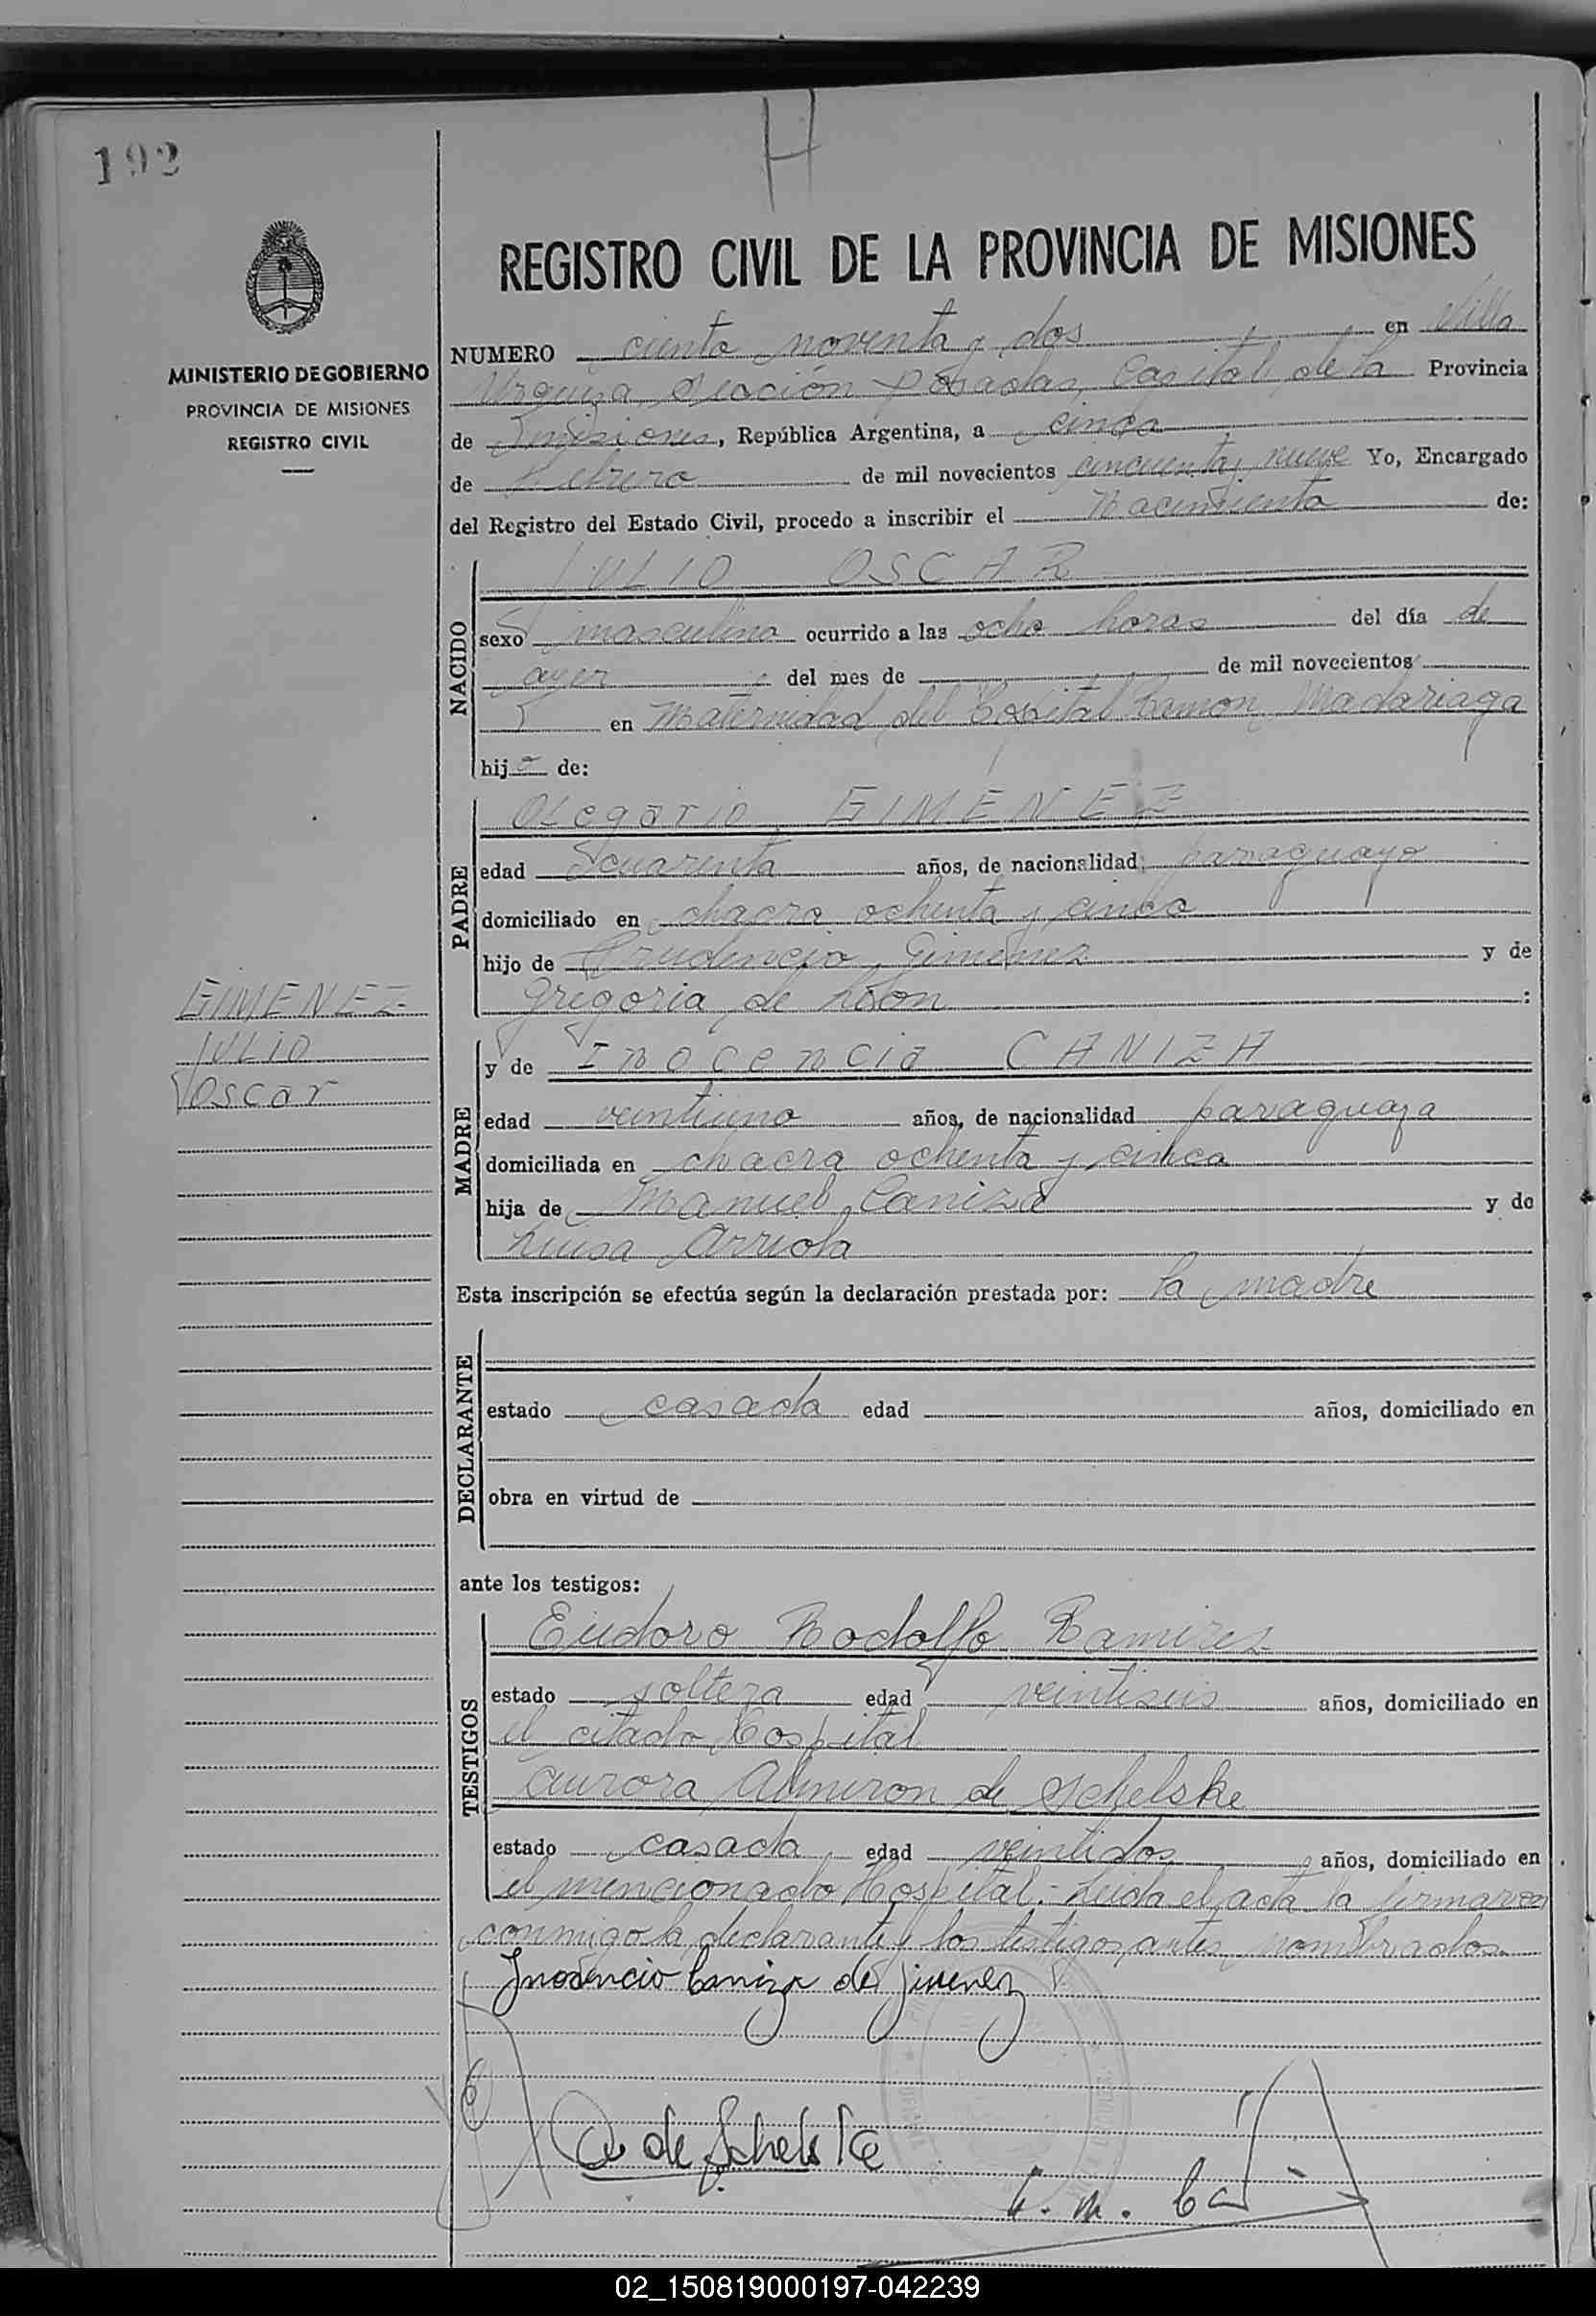 192
H
MINISTERIO DE GOBIERNO
PROVINCIA DE MISIONES
REGISTRO CIVIL
REGISTRO CIVIL DE LA PROVINCIA DE MISIONES
NUMERO ciento noventa y dos en Villa
Urquiza, Sección Posadas, Capital de la Provincia
de Misiones, República Argentina, a cinco
de Febrero de mil novecientos cincuenta y nueve Yo, Encargado
del Registro del Estado Civil, procedo a inscribir el Nacimiento de:
NACIDO
JULIO OSCAR
sexo masculino ocurrido a las ocho horas del día de
ayer del mes de de mil novecientos
en Maternidad del Hospital Ramon Madariaga
hijo de:
PADRE
Olegario GIMENEZ
edad cuarenta años, de nacionalidad paraguayo
domiciliado en chacra ochenta y cinco
hijo de Prudencio Gimenez y de
Gregoria de Leon :
GIMENEZ
JULIO
Oscar
MADRE
y de Inocencia CANIZA
edad veintiuno años, de nacionalidad paraguaya
domiciliada en chacra ochenta y cinco
hija de Manuel Caniza y de
Luisa Arriola
Esta inscripción se efectúa según la declaración prestada por: la madre
DECLARANTE
estado casada edad años, domiciliado en
obra en virtud de
ante los testigos:
TESTIGOS
Eudoro Rodolfo Ramirez
estado soltero edad veintiseis años, domiciliado en
el citado Hospital
Aurora Almiron de Schelske
estado casada edad veintidos años, domiciliado en
el mencionado Hospital.- Leida el acta la firmaron
conmigo la declarante y los testigos antes nombrados.
Inosencio Caniza de Jimenez
A de Schelske
02_150819000197-042239